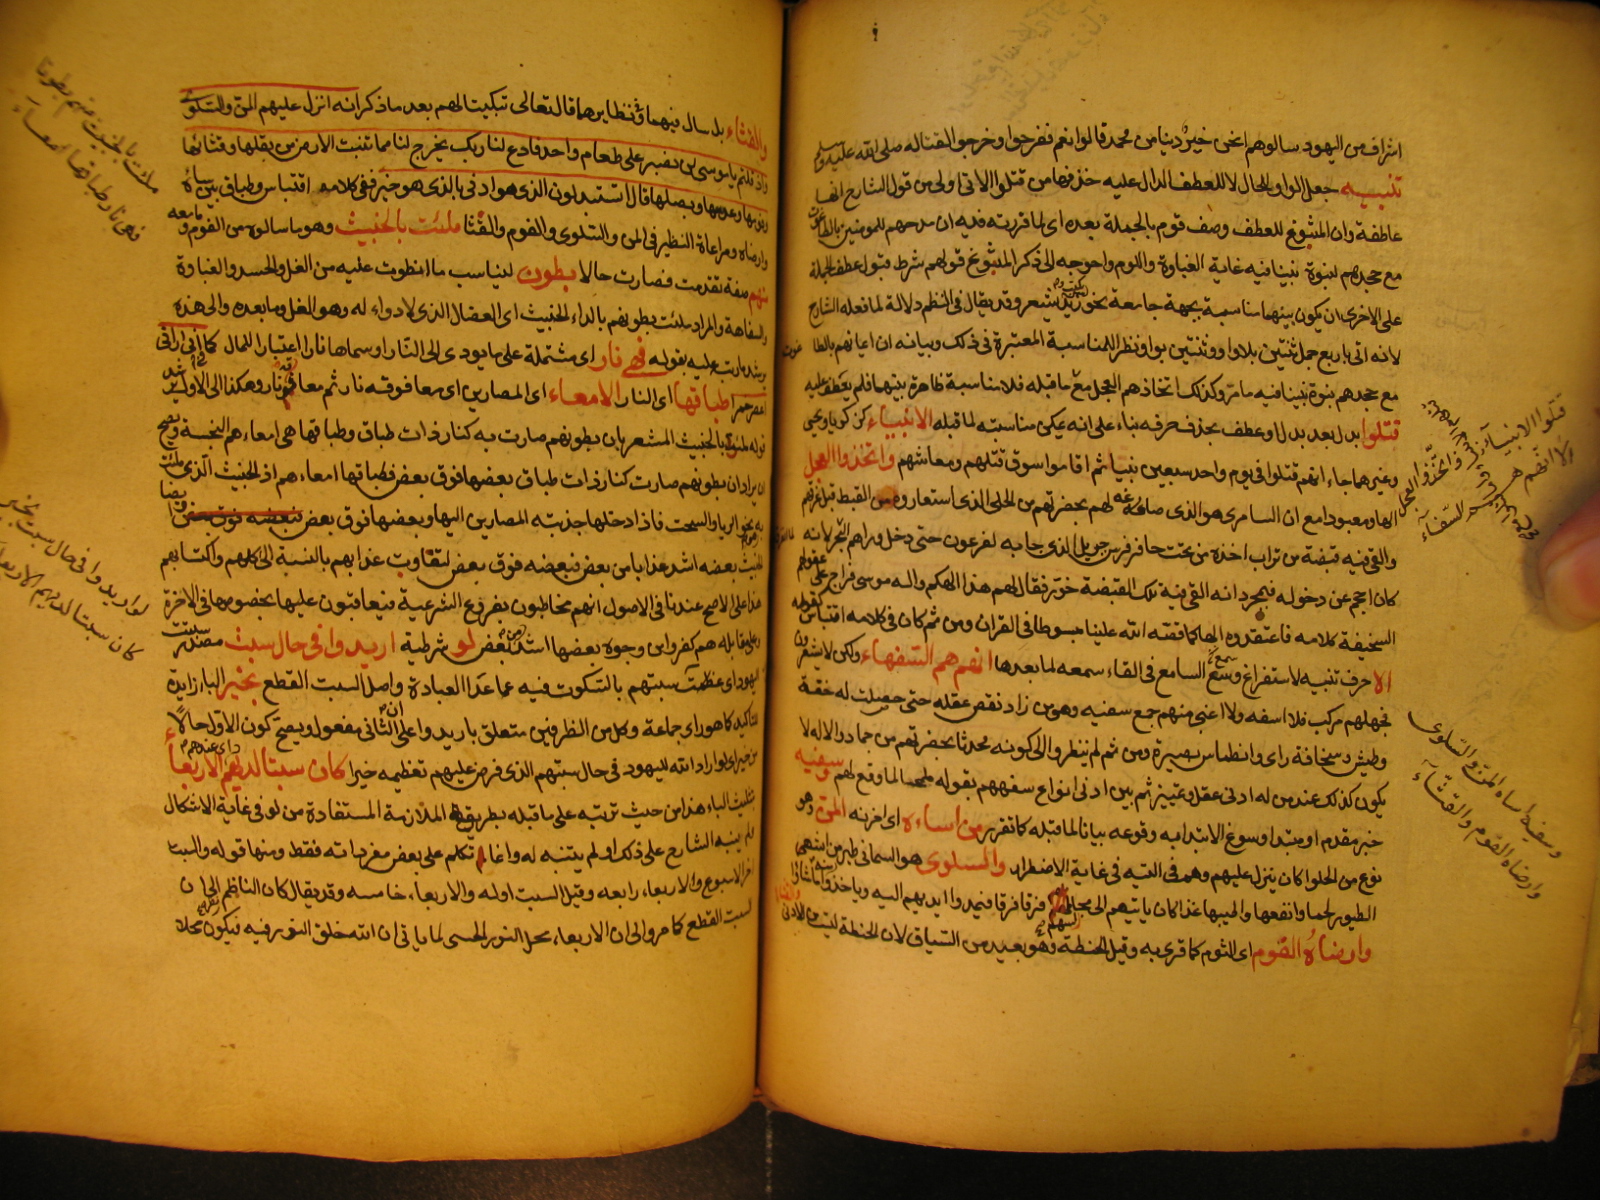 اشراف من اليهود سالوهم انحن خير دينا من محمد قالوا نعم ففرحوا وخرجوا لقتاله صلى الله عليه وسلم
تنبيه جعل الواو للحال لا للعطف الدال عليه حذفها من قتلوا الآتي اولى من قول الشارح انها
عاطفة وان المسوغ للعطف وصف قوم بالجملة بعده اي لما قررته فيه ان مدحهم للمؤمنين بالطاغوت
مع جحدهم لنبوة نبينا فيه غاية الغباوة واللوم واحوجه الى ذكر المسوغ قولهم شرط قبول عطف الجملة
على الاخرى ان يكون بينهما مناسبة بجهة جامعة نحو زيد يشعر وقد يقال في النظم دلالة لما فعله الشارح
لانه اتى باربع جمل ثنتين بلا واو وثنتين بواو نظرا للمناسبة المعتبرة في ذلك وبيانه ان ايمانهم بالطا غوت
مع جحدهم نبوة نبينا فيه ما مر وكذلك اتخاذهم العجل مع ما قبله فلا مناسبة ظاهرة بينهما فلم يعطف عليه
قتلوا بدل بعد بدل او عطف بحذف حرفه بناء على انه يكفى مناسبته لما قبله الانبياء كزكريا ويحيى
وغيرهما جاء انهم قتلوا في يوم واحد سبعين نبيا ثم اقاموا سوق قتلهم ومعاشهم واتخذوا العجل
الها ومعبودا مع ان السامري هو الذى صاغه لهم بحضرتهم من الحلي الذى استعاروه من القبط قبل غرقهم
والقى فيه قبضة من تراب اخذه من تحت حافر فرس جبريل الذى جا به لفرعون حتى دخل وراهم البحر لانه
كان احجم عن دخوله فبمجرد انه القى فيه تلك القبضة خور فقال لهم هذا الهكم واله موسى فراج على عقولهم
السخيفة كلامه فاعتقدوه الها كما قصه الله علينا مبسوطا في القران ومن ثم كان في كلامه اقتباس كقوله
الا حرف تنبيه لاستفراغ وسع السامع في القاء سمعه لما بعدها انهم هم السفهاء ولكن لا يشعرون
فجهلهم مركب فلا اسفه ولا اغبى منهم جمع سفيه وهو من زاد نقص عقله حتى حصلت له خفة
وطيش وسخافة راى وانطماس بصيرة ومن ثم لم ينظروا الى كونه محدثا بحضرتهم من جماد والاله لا
يكون كذلك عند من له ادنى عقل وتمييز ثم بين ادنى انواع سفههم بقوله ملمحا لما وقع لهم وسفيه
خبر مقدم او مبتدا وسوغ الابتدا به وقوعه بيانا لما قبله كما تقرر من اساءه اى احزنه المن وهو
نوع من الحلوا كان ينزل عليهم وهم في التيه في غاية الاضطرار والسلوى هو السمانى طير من اشهى
الطيور لحما وانفعها واطيبها غذا كان ياتيهم الى محلهم فرقا فرقا فيمدوا ايديهم اليه وياخذوا ما شاؤا
وارضاه الفوم اى الثوم كما قرى به وقيل الحنطة وهو بعيد من السياق لان الحنطة ليست من الادنى
قتلوا الانبياء واتخذوا العجل
الا انهم هم السفهاء
وسفيه اساءه المن والسلوى
وارضاه الفوم والقثاء
والقثاء بدل سال فيهما وفي نظايرهما قال تعالى تبكيتا لهم بعد ما ذكر انه انزل عليهم المن والسلوى
واذ قلتم يا موسى لن نصبر على طعام واحد فادع لنا ربك يخرج لنا مما تنبت الارض من بقلها وقثائها
وفومها وعدسها وبصلها قال اتستبدلون الذى هو ادنى بالذى هو خير ففي كلامه اقتباس وطباق بين ساءه
وارضاه ومراعاة النظير في المن والسلوى والفوم والقثا ملئت بالخبيث وهو ما سالوه من الفوم وما معه
منهم صفة تقدمت فصارت حالا بطون ليناسب ما انطوت عليه من الغل والحسد والغباوة
والسفاهة والمراد ملئت بطونهم بالداء الخبيث اى العضال الذى لا دواء له وهو الغل وما بعده والى هذه
يرشد ما رتبه عليه بقوله فهي نار اى مشتملة على ما يودى الى النار او سماها نارا اعتبارا للمال كما انى اراني
اعصر خمرا طباقها اى النار الامعاء اى المصارين اى معا فوقه نار ثم معا فوقه نار وهكذا الى الاول يرشد
قوله ملئت بالخبيث المشعر بان بطونهم صارت به كنار ذات طباق وطباقها هى امعاءهم النجسة ويصح
ان يراد ان بطونهم صارت كنار ذات طباق بعضها فوق بعض فطباقها امعاءهم اذ الخبيث الذى ملئت
به نحو الربا والسحت فاذا دخلها جذبته المصارين اليها وبعضها فوق بعض فبعضه فوق بعض وايضا
الخبيث بعضه اشد عذابا من بعض فبعضه فوق بعض لتفاوت عذابهم بالنسبة الى كلهم واكتسابهم
هذا على الاصح عندنا في الاصول انهم مخاطبون بفروع الشرعية فيعاقبون عليها بخصوصها في الاخرة
وعلى مقابله هم كفروا من وجوه بعضها اشد من بعض لو شرطية اريدوا في حال سبت مصدر سبتت
اليهود اى عظمت سبتهم بالسكوت فيه عما عدا العبادة واصل السبت القطع بخير الباء زايدة
للتاكيد كما هو راى جماعة وكل من الظرفين متعلق باريدوا على ان الثانى مفعول ويصح كون الاول حالا
من خير اى لو اراد الله لليهود في حال سبتهم الذى فرض عليهم تعظيمه خيرا كان سبتا لديهم اى عندهم الاربعاء
بتثليث الباء هذا من حيث ترتبه على ما قبله بطريق الملازمة المستفادة من لو في غاية الاشكال
ولم ينبه الشارح على ذلك او لم يتنبه له وانما تكلم على بعض مفرداته فقط ومنها قوله والسبت
اخر الاسبوع والاربعاء رابعه وقيل السبت اوله والاربعاء خامسه وقد يقال كان الناظم الجا ان
السبت القطع كما مر والى ان الاربعاء محل النور الحسى لما ياتى ان الله خلق النور فيه فيكون محلا
ملئت بالخبيث منهم بطون
فهى نار طباقها الامعاء
لو اريدوا في حال سبت بخير
كان سبتا لديهم الاربعاء